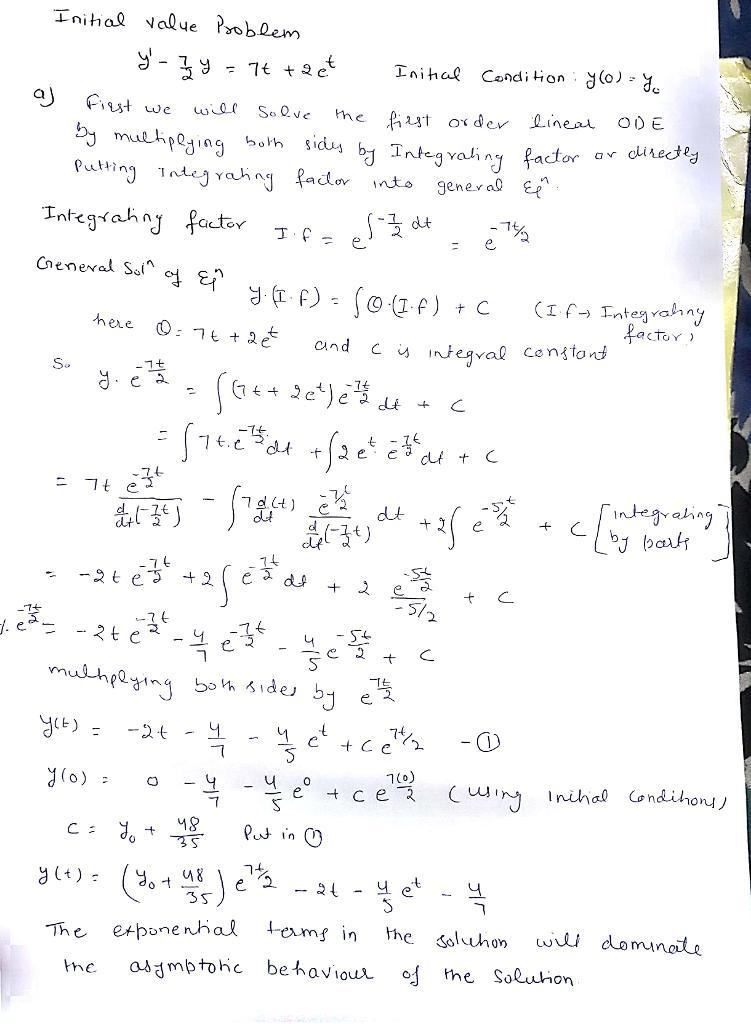 Initial value Problem
y' - 7/2 y = 7t + 2e^t Initial Condition: y(0) = y₀
a) First we will solve the first order linear ODE
by multiplying both sides by Integrating factor or directly
Putting Integrating factor into general Eqⁿ.
Integrating factor I.f = e^{∫-7/2 dt} = e^{-7t/2}
General Solⁿ of Eqⁿ
y.(I.f) = ∫Q.(I.f) + C (I.f → Integrating factor)
here Q = 7t + 2e^t and c is integral constant
So y.e^{-7t/2} = ∫(7t + 2e^t)e^{-7t/2} dt + C
= ∫7t.e^{-7t/2} dt + ∫2e^t e^{-7t/2} dt + C
= 7t e^{-7t/2} / (d/dt(-7t/2)) - ∫7 d/dt(t) e^{-7t/2} / (d/dt(-7/2 t)) dt + 2∫e^{-5t/2} + C [integrating by parts]
= -2t e^{-7t/2} + 2∫e^{-7t/2} dt + 2 e^{-5t/2} / (-5/2) + C
y.e^{-7t/2} = -2t e^{-7t/2} - 4/7 e^{-7t/2} - 4/5 e^{-5t/2} + C
multiplying both sides by e^{7t/2}
y(t) = -2t - 4/7 - 4/5 e^t + c e^{7t/2} - ①
y(0) = 0 - 4/7 - 4/5 e^0 + c e^{7(0)/2} (using initial conditions)
C = y₀ + 48/35 Put in ①
y(t) = (y₀ + 48/35) e^{7t/2} - 2t - 4/5 e^t - 4/7
The exponential terms in the solution will dominate
the asymptotic behaviour of the solution.